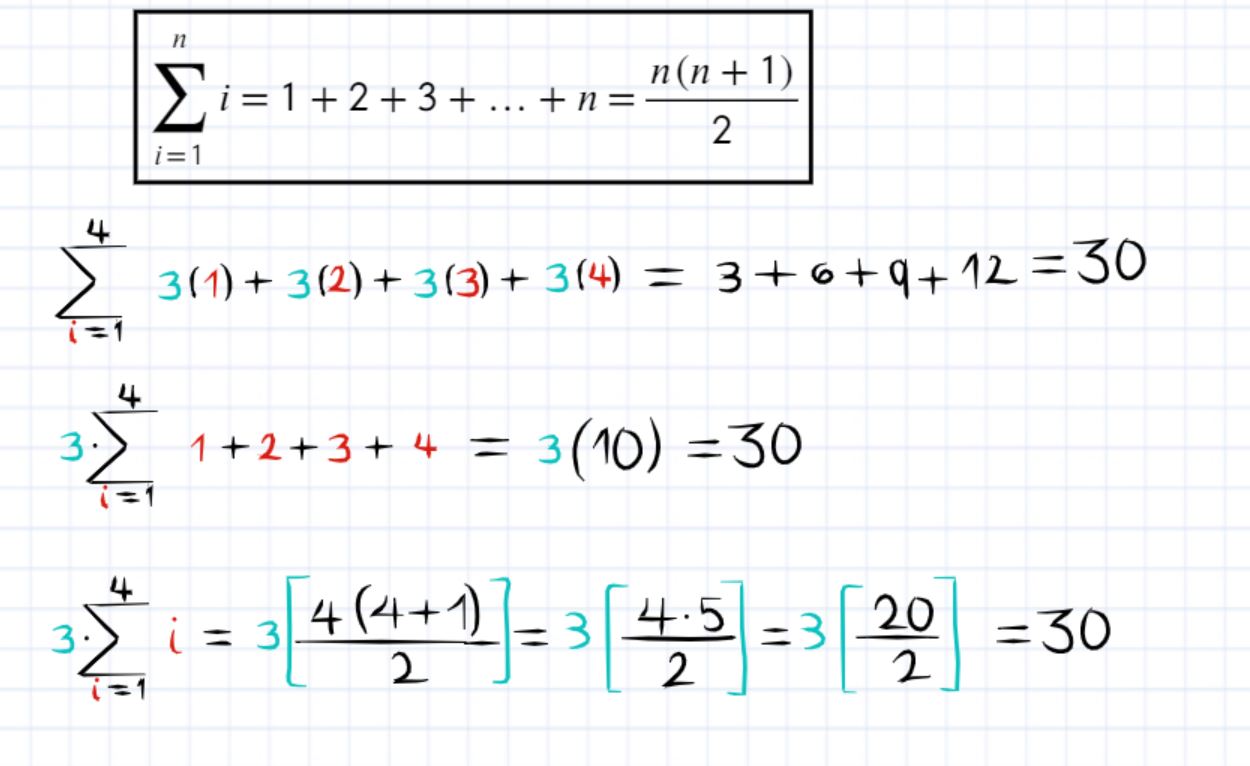 \sum_{i=1}^{n} i = 1 + 2 + 3 + ... + n = \frac{n(n+1)}{2}
\sum_{i=1}^{4} 3(1) + 3(2) + 3(3) + 3(4) = 3 + 6 + 9 + 12 = 30
3 \cdot \sum_{i=1}^{4} 1 + 2 + 3 + 4 = 3(10) = 30
3 \cdot \sum_{i=1}^{4} i = 3\left[\frac{4(4+1)}{2}\right] = 3\left[\frac{4 \cdot 5}{2}\right] = 3\left[\frac{20}{2}\right] = 30